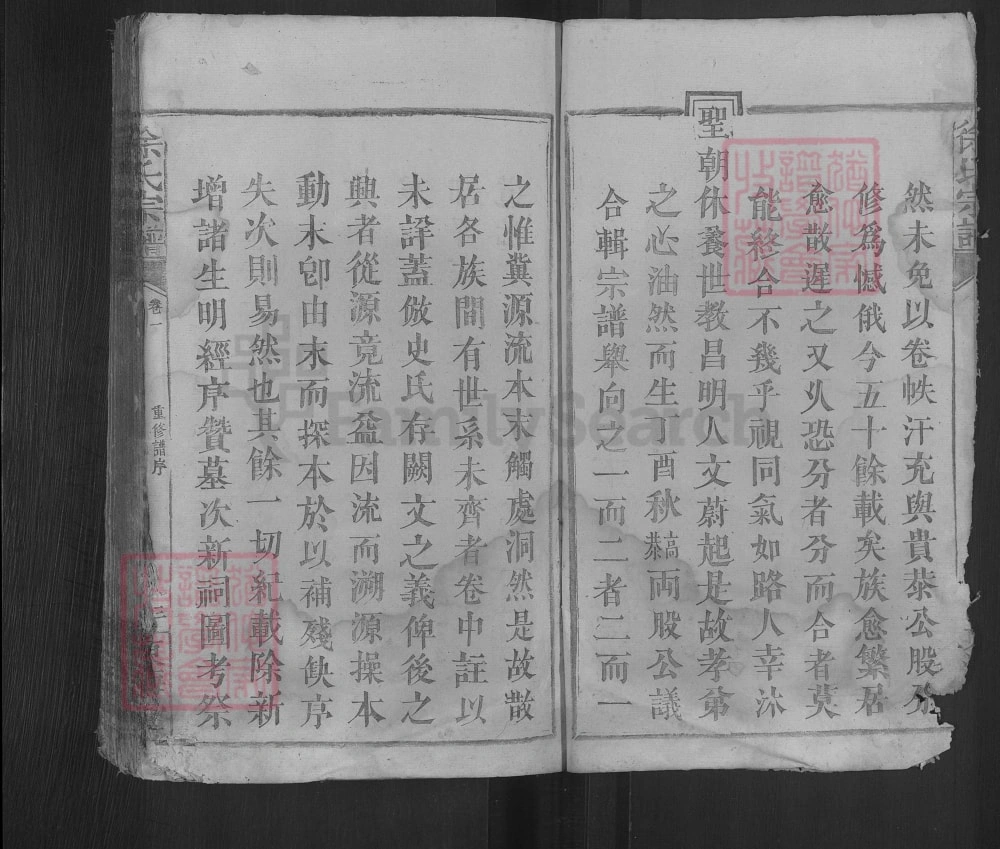 然未免以卷帙汗充與貴恭公股分
修爲憾俄今五十餘載矣族愈繁居
愈散遲之又乆恐分者分而合者莫
能終合不幾乎視同氣如路人幸沐
聖朝休養世教昌明人文蔚起是故孝弟
之心油然而生丁酉秋槁恭両股公議
合輯宗譜舉向之一而二者二而一
之惟冀源流本末觸處洞然是故散
居各族間有世系未齊者卷中註以
未詳蓋倣史氏存闕文之義俾後之
興者從源竟流盃因流而溯源操本
動末卽由末而探本於以補殘缺序
失次則易然也其餘一切紀載除新
增諸生明經序贊墓次新祠圖考祭
徐氏宗譜
卷一
重修譜序
FamilySearch